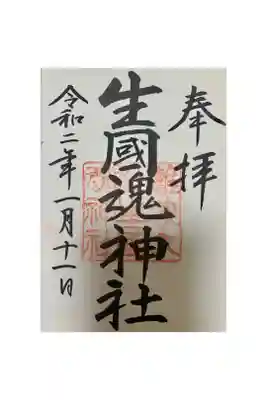 奉拝
生國魂神社
令和二年一月十一日